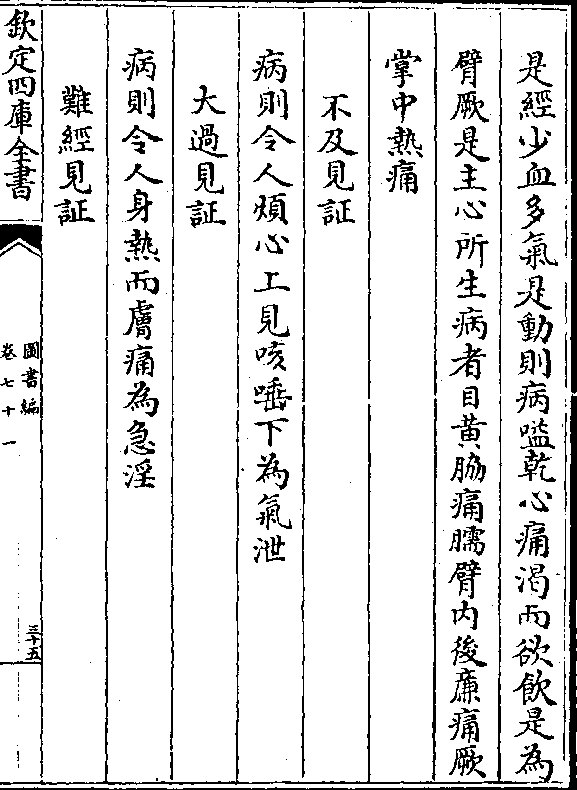 是經少血多氣是動則病嗌乾心痛渴而欲飲是為
臂厥是主心所生病者目黄脇痛臑臂内後廉痛厥
掌中熱痛
不及見証
病則令人煩心上見咳唾下為氣泄
大過見証
病則令人身熱而膚痛為急淫
難經見証
欽定四庫全書
圖書編
卷七十一
三十五